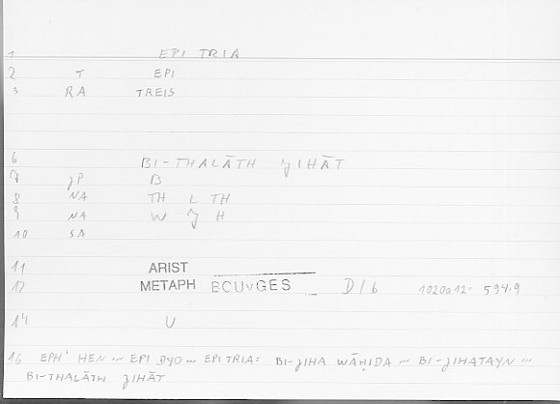 1 EPI TRIA
2 T EPI
3 RA TREIS
6 BI-THALĀTH JIHĀT
7 JP B
8 NA TH L TH
9 NA W J H
10 SA
11 ARIST
12 METAPH BCUvGES D16 1020a12. 594.9
14 U
16 EPH' HEN ... EPI DYO ... EPI TRIA: BI-JIHA WĀḤIDA ... BI-JIHATAYN ...
BI-THALĀTH JIHĀT